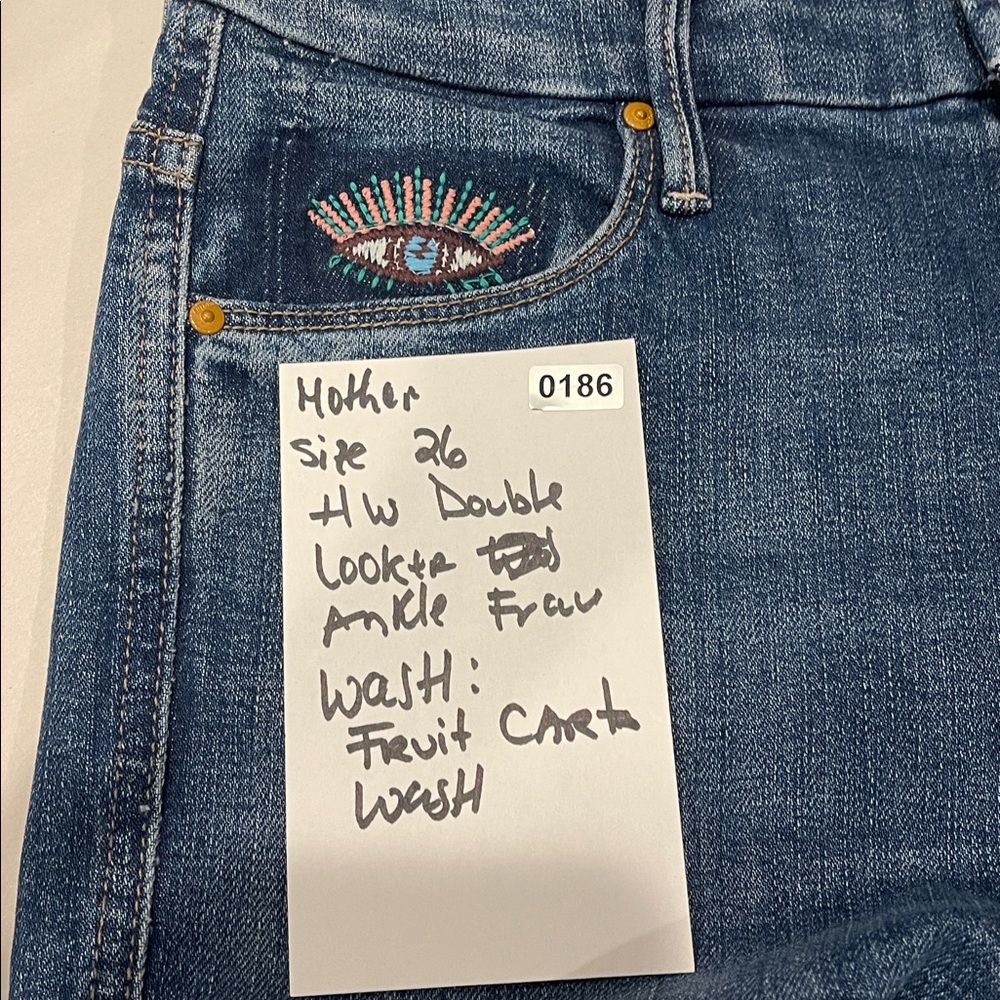 Mother
0186
Size 26
HW Double
Looker
Ankle Frau
Wash:
Fruit Cart
Wash